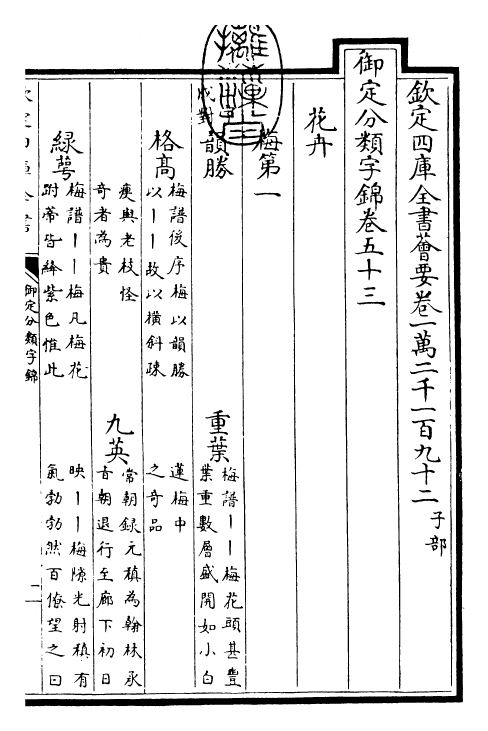 欽定四庫全書薈要卷一萬二千一百九十二 子部
御定分類字錦卷五十三
花卉
梅第一
成對
韻勝
格髙
梅譜後序梅以韻勝
以丨丨故以橫斜疎
瘦與老枝怪
奇者為貴
重葉
梅譜丨丨梅花頭甚豐
葉重數層盛開如小白
蓮梅中
之奇品
九英
常朝録元稹為翰林承
旨朝退行至廊下初日
緑萼
梅譜丨丨梅凡梅花
跗蔕皆絳紫色惟此
映丨丨梅隙光射稹有
氣勃勃然百僚望之曰
御定分類字錦
一